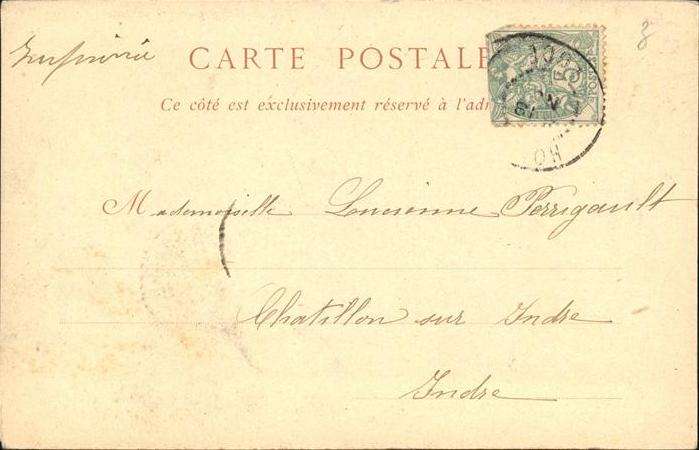 Imprimé
CARTE POSTALE
Ce côté est exclusivement réservé à l'adr
Mademoiselle Lucienne Perrigault
Châtillon sur Indre
Indre